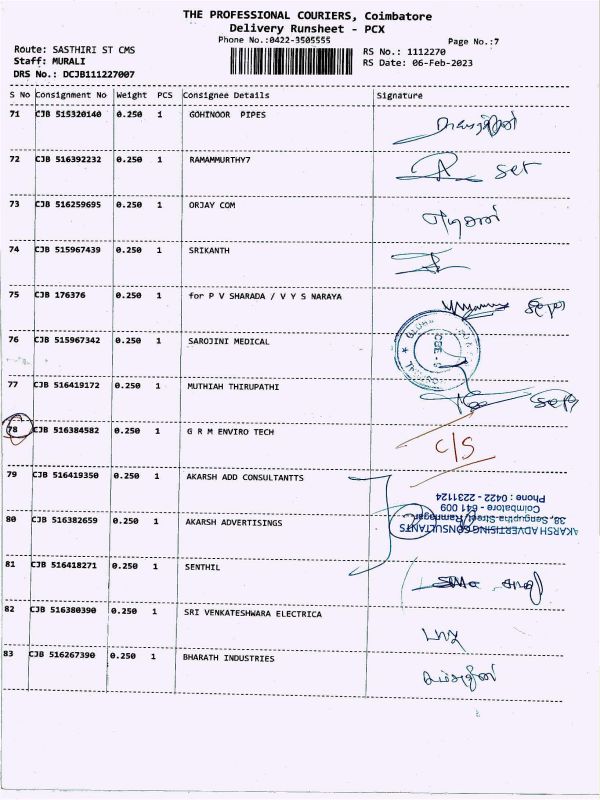 THE PROFESSIONAL COURIERS, Coimbatore
Delivery Runsheet - PCX
Phone No.:0422-3505555
Page No.:7
Route: SASTHIRI ST CMS
RS No.: 1112270
Staff: MURALI
RS Date: 06-Feb-2023
DRS No.: DCJB111227007
S No Consignment No Weight PCS Consignee Details Signature
71 CJB 515320140 0.250 1 GOHINOOR PIPES
72 CJB 516392232 0.250 1 RAMAMMURTHY7
73 CJB 516259695 0.250 1 ORJAY COM
74 CJB 515967439 0.250 1 SRIKANTH
75 CJB 176376 0.250 1 for P V SHARADA / V Y S NARAYA
76 CJB 515967342 0.250 1 SAROJINI MEDICAL
77 CJB 516419172 0.250 1 MUTHIAH THIRUPATHI
78 CJB 516384582 0.250 1 G R M ENVIRO TECH C/S
79 CJB 516419350 0.250 1 AKARSH ADD CONSULTANTTS
80 CJB 516382659 0.250 1 AKARSH ADVERTISINGS
AKARSH ADVERTISING CONSULTANTS
38, Sengupta Street, Ramnagar,
Coimbatore - 641 009
Phone : 0422 - 2231124
81 CJB 516418271 0.250 1 SENTHIL
82 CJB 516380390 0.250 1 SRI VENKATESHWARA ELECTRICA
83 CJB 516267390 0.250 1 BHARATH INDUSTRIES